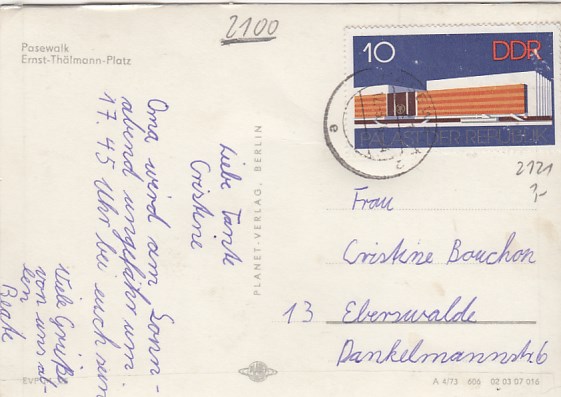 2100
Pasewalk
Ernst-Thälmann-Platz
10
DDR
PALAST DER REPUBLIK
2121
Liebe Tante
Cristine
Oma wird am Sonn-
abend ungefähr um
17.45 Uhr bei euch sein
Viele Grüße
von uns al-
len
Beate
PLANET-VERLAG, BERLIN
Frau
Cristine Bouchon
13 Eberswalde
Dankelmannstr. 6
A 4/73 606 02 03 07 016